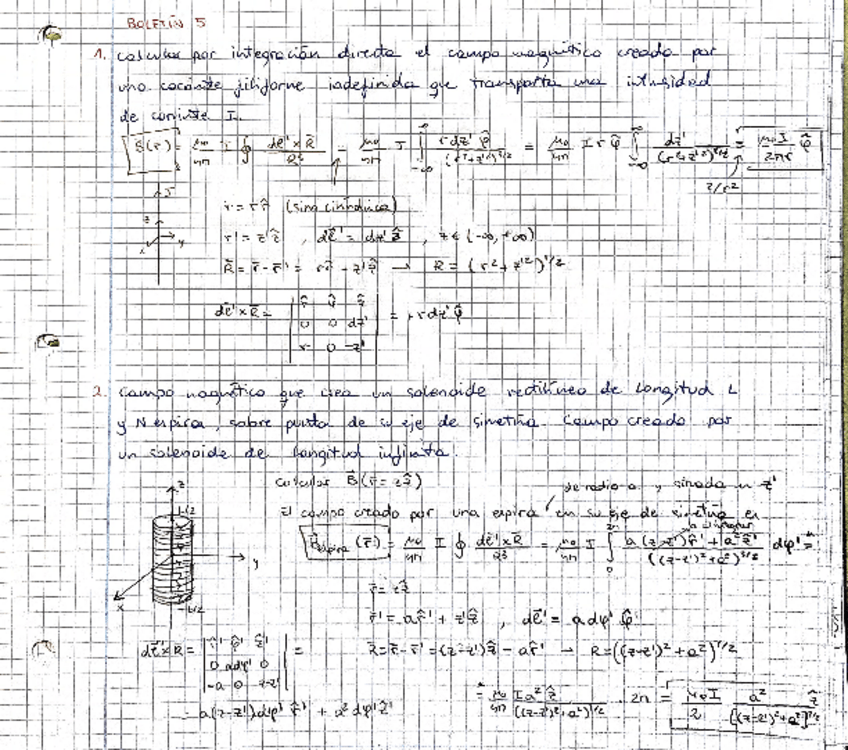 BOLETÍN 5
1. Calcular por integración directa el campo magnético creado por
una corriente filiforme indefinida que transporta una intensidad
de corriente I.
B(r) = μ₀/4π I ∮ dl'×R/R³ = μ₀/4π I ∫_{-∞}^{∞} r dz' φ̂/(r²+z'²)^{3/2} = μ₀/4π I r φ̂ ∫_{-∞}^{∞} dz'/(r²+z'²)^{3/2} = μ₀I/2πr φ̂
2/r²
r̄ = r r̂ (sim cilíndrica)
r̄' = z'ẑ , dl̄' = dz'ẑ , z ∈ (-∞, +∞)
R̄ = r̄ - r̄' = r r̂ - z'ẑ → R = (r² + z'²)^{1/2}
dl̄'×R̄ = | r̂ φ̂ ẑ |
| 0 0 dz' | = r dz' φ̂
| r 0 -z' |
2. Campo magnético que crea un solenoide rectilíneo de longitud L
y N espiras, sobre puntos de su eje de simetría. Campo creado por
un solenoide de longitud infinita.
z
Calcular B̄(r̄ = zẑ)
de radio a y situada en z'
L/2
El campo creado por una espira en su eje de simetría es
B̄espira (r̄) = μ₀/4π I ∮ dl̄'×R̄/R³ = μ₀/4π I ∫₀^{2π} a(z-z')r̂' + a²ẑ'/((z-z')²+a²)^{3/2} dφ' =
y
x
-L/2
r̄ = zẑ
r̄' = a r̂' + z'ẑ , dl̄' = a dφ' φ̂'
dl̄'×R̄ = | r̂' φ̂' ẑ' |
| 0 adφ' 0 | =
| -a 0 z-z' |
R̄ = r̄ - r̄' = (z-z')ẑ - a r̂' → R = ((z-z')² + a²)^{1/2}
= a(z-z')dφ' r̂' + a² dφ' ẑ'
= μ₀/4π I a² ẑ/((z-z')²+a²)^{3/2} · 2π = μ₀I/2 a²/[(z-z')²+a²]^{3/2} ẑ